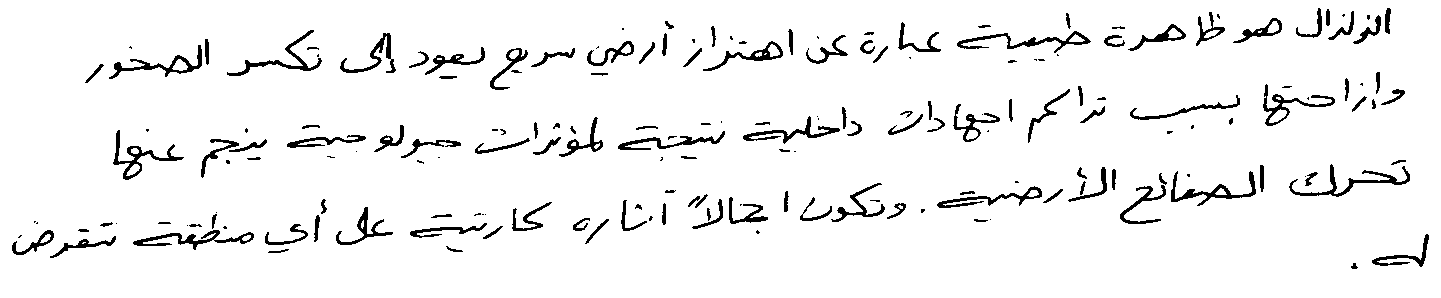 الزلزال هو ظاهرة طبيعية عبارة عن اهتزاز أرضي سريع يعود إلى تكسر الصخور
وإزاحتها بسبب تراكم اجهادات داخلية نتيجة لمؤثرات جيولوجية ينجم عنها
تحرك الصفائح الأرضية. وتكون اجمالاً آثاره كارثية على أي منطقة تتعرض
له.